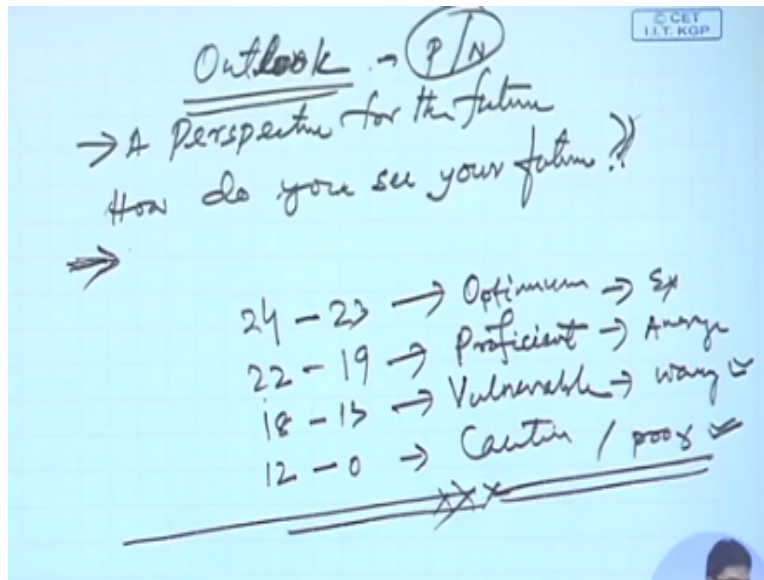 © CET
I.I.T. KGP
Outlook → P/N
→ A Perspective for the future
How do you see your future??
→
24 – 23 → Optimum → Ex
22 – 19 → Proficient → Average
18 – 13 → Vulnerable →
12 – 0 → Caution / poor
xxx